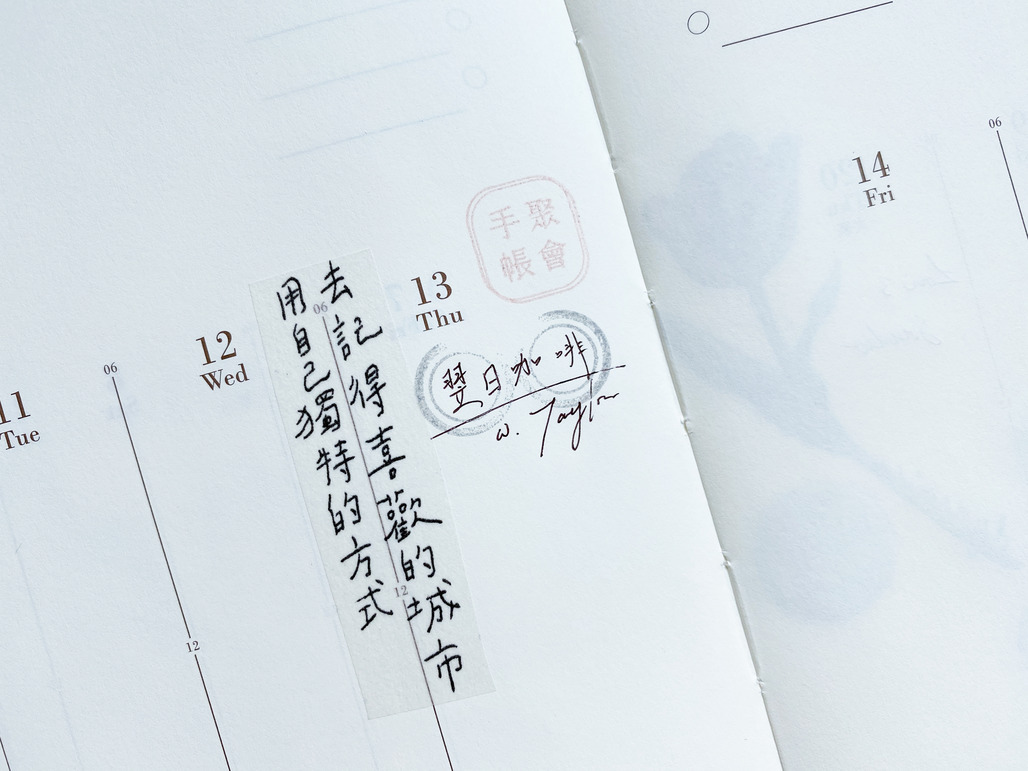 11
Tue
06
12
12
Wed
去記得喜歡的城市
用自己獨特的方式
06
12
13
Thu
聚會
手帳
翌日咖啡
w. Taylor
14
Fri
06